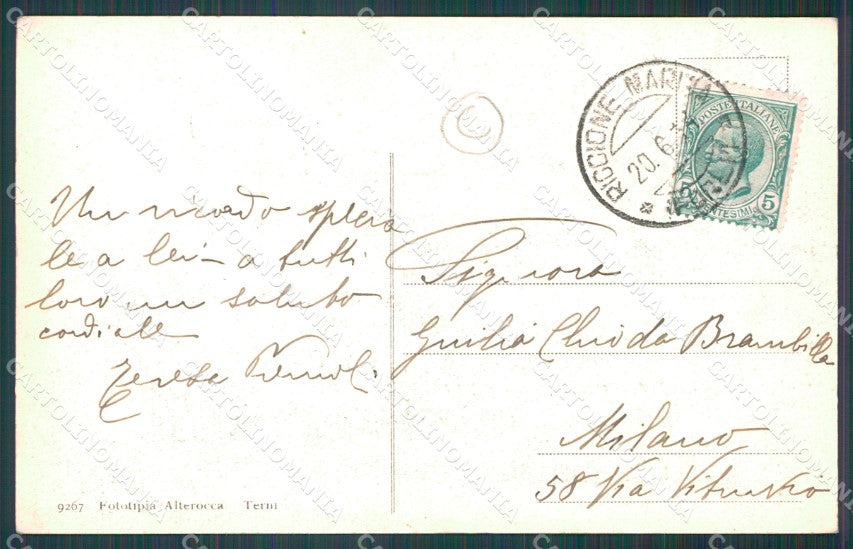 Un ricordo specia
le a lei - a tutti
loro un saluto
cordiale
Teresa
Signora
Giulia Chioda Brambilla
Milano
58 Via Vitruvio
RICCIONE MARINA
20.6
POSTE ITALIANE
5 CENTESIMI 5
9267 Fototipia Alterocca Terni
CARTOLINOMANIA